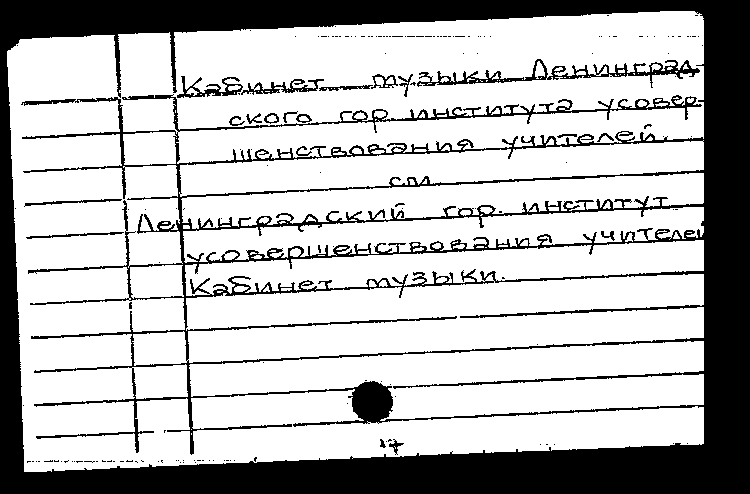 Кабинет музыки Ленинград-
ского гор. института усовер-
шенствования учителей.
см.
Ленинградский гор. институт
усовершенствования учителей
Кабинет музыки.
17